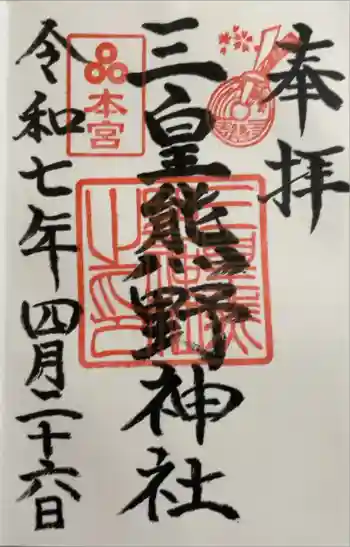 奉拝
三皇熊野神社
本宮
令和七年四月二十六日